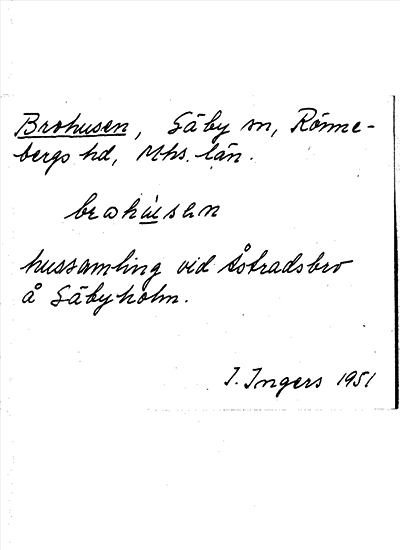 Brohusen, Säby sn, Rönne-
bergs hd, Mhs. län.
brohusen
hussamling vid Åstradsbro
å Säbyholm.
I. Ingers 1951